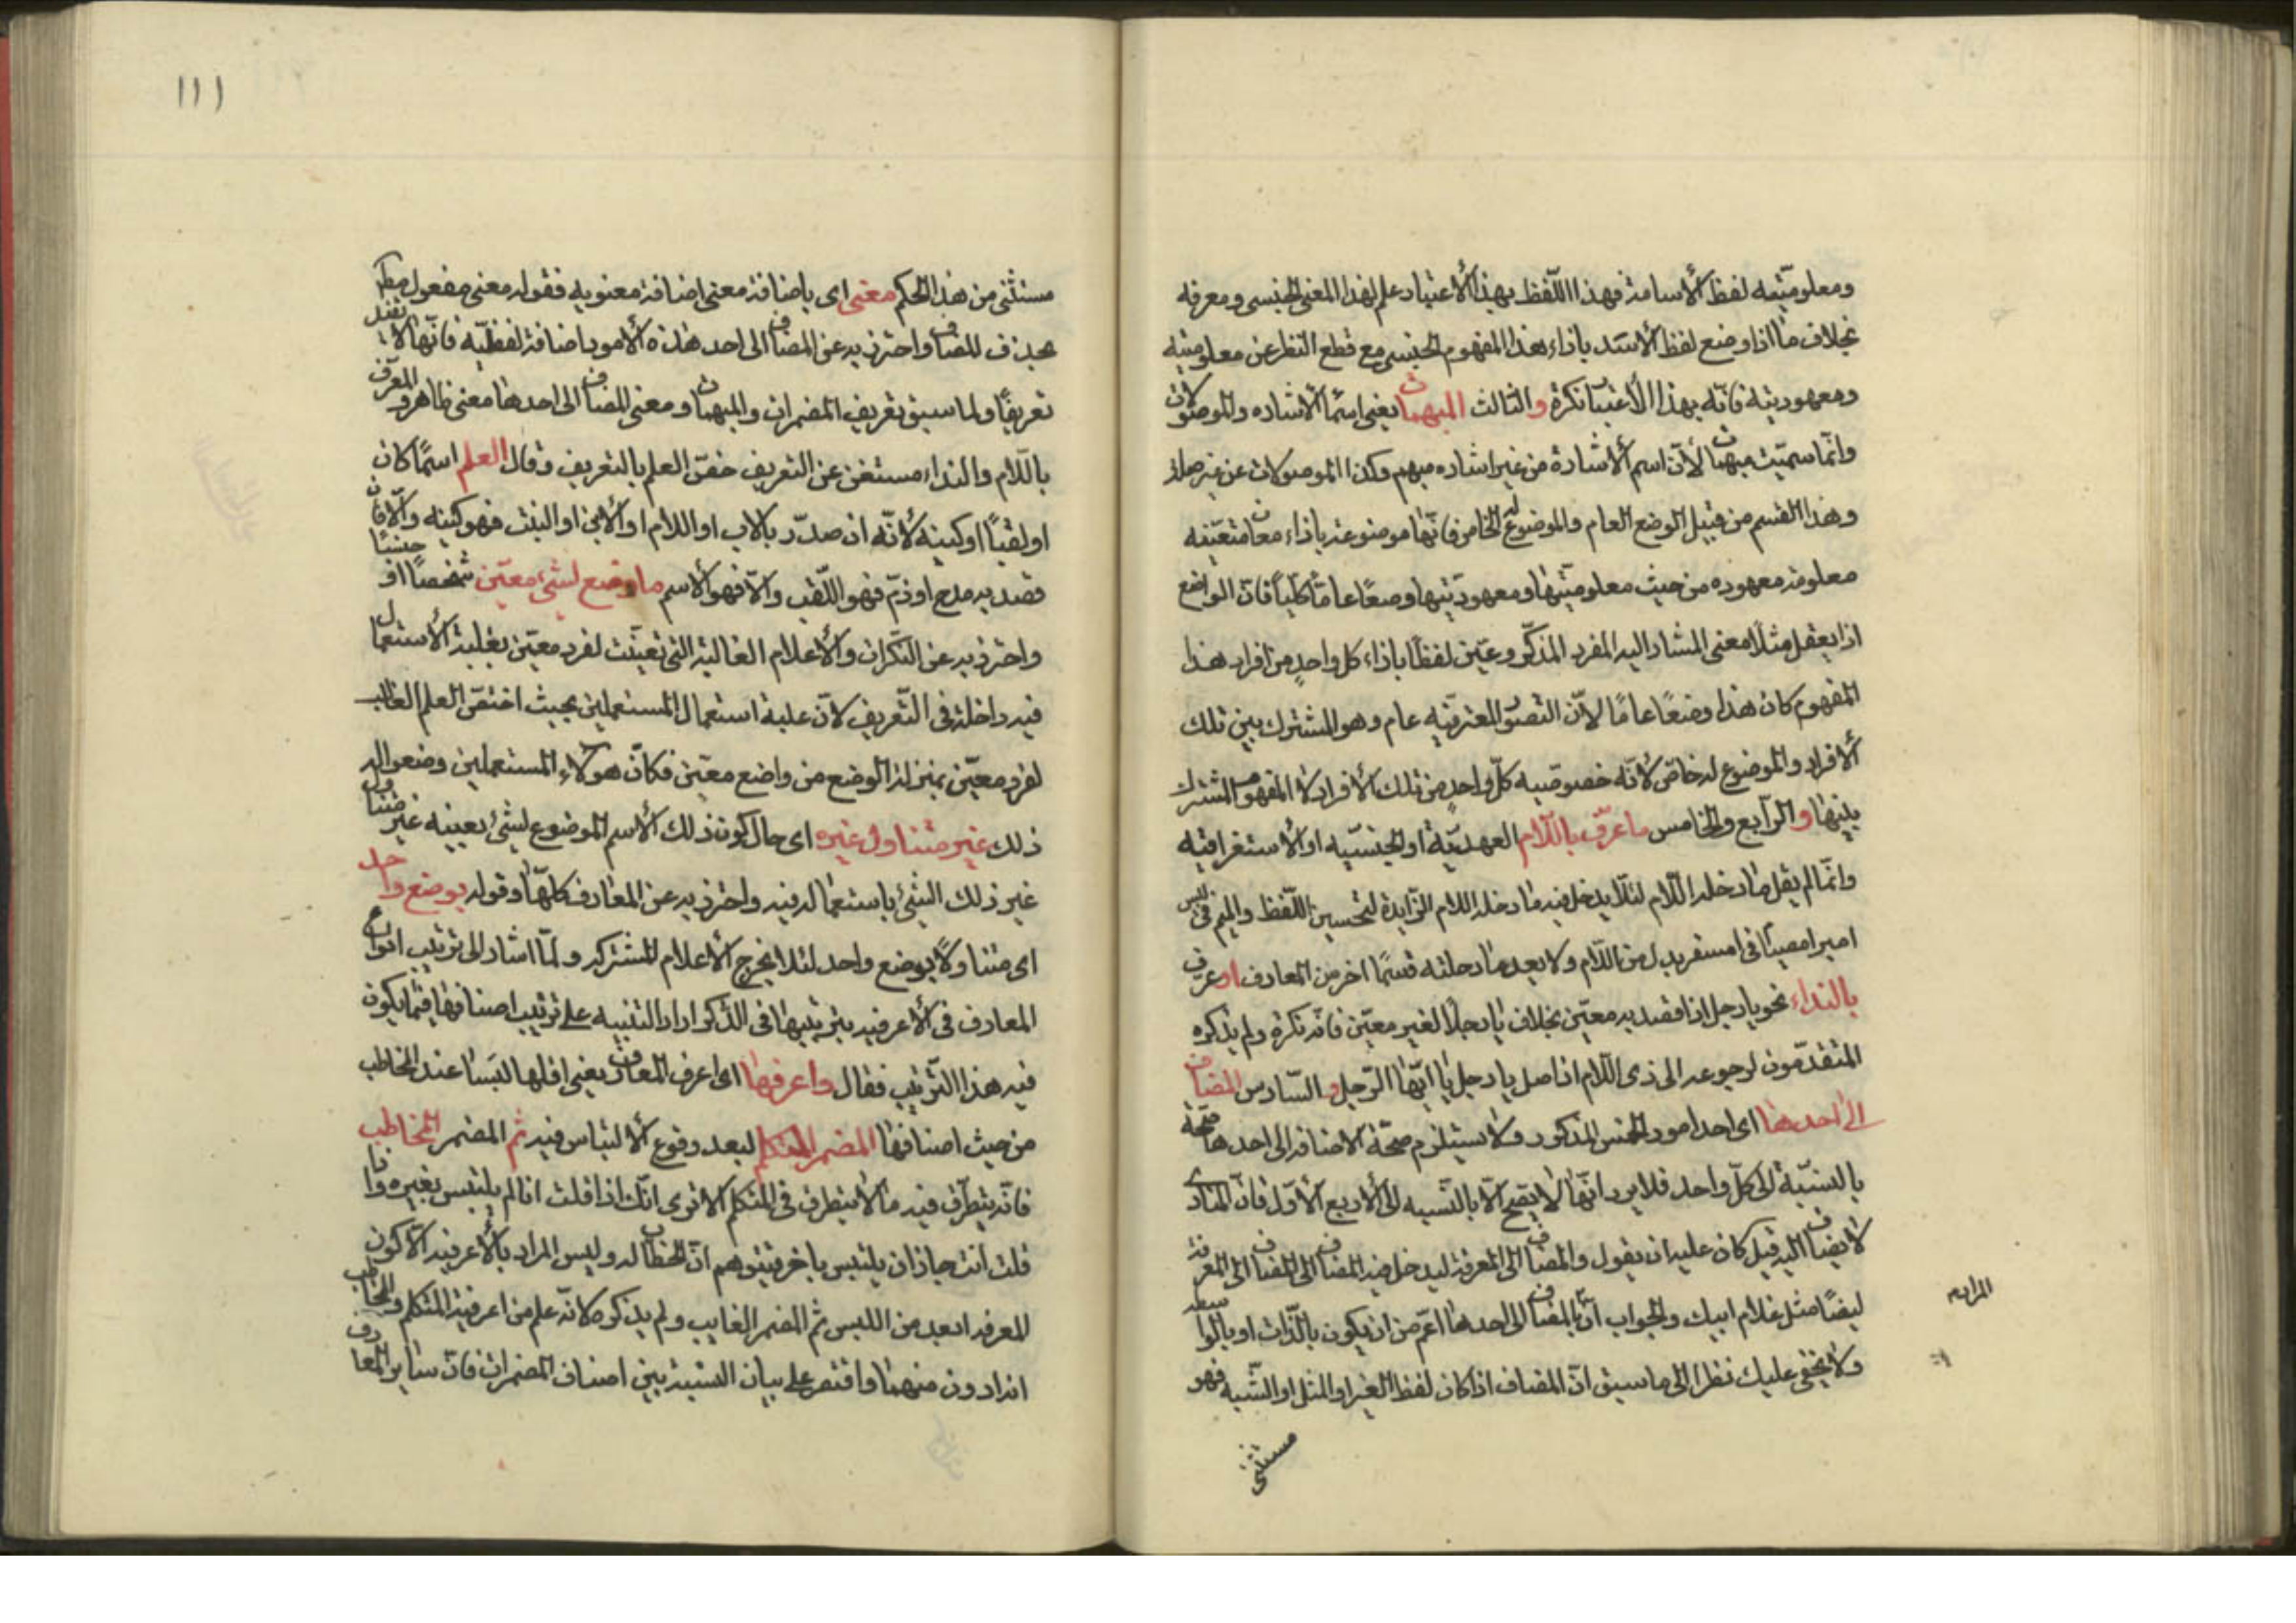 ومعلوميّته لفظ الأسامة فهذا اللّفظ بهذا الأعتبار علم لهذا المعنى الجنسى ومعرفه
بخلاف ما اذا وضع لفظ الأسد بازاء هذا المفهوم الجنسى مع قطع النظر عن معلوميته
ومعهوديته فانّه بهذا الأعتبار نكرة والثالث المبهمات يعنى اسماء الاشاره والموصولات
وانّما سمّيت مبهمات لأنّ اسم الأشارة من غير اشاره مبهم وكذا الموصولات عن غير صلة
وهذا القسم من قبيل الوضع العام والموضوع له الخاص فانّها موضوعة بازاء معان متعيّنه
معلومة معهوده من حيث معلوميّتها ومعهوديّتها وضعًا عامّا كلّيا فان الواضع
اذا يعقل مثلًا معنى المشار اليه المفرد المذكّر وعيّن لفظًا بازاء كل واحدٍ من افراد هذا
المفهوم كان هذا وضعًا عامًا لأنّ التصوّر المعتبر فيه عام وهو المشترك بين تلك
ألافراد والموضوع له خاصّ لأنّه خصوصيه كلّ واحدٍ من تلك الأفراد لا المفهوم المشترك
بينها والرّابع والخامس ما عرّف باللّام العهديّة او الجنسيّه او الأستغراقيه
وانّما لم يقل ما دخله اللّام لئلّا يدخل فيه ما دخله اللام الزّايدة لتحسين اللّفظ والميم فى ليس
امبرامصيام فى امسفر بدل من اللّام ولا يعد ما دخلته قسمًا اخر من المعارف او عرف
بالنداء نحو يا رجل اذا قصد به معيّن بخلاف يا رجلًا لغير معيّن فانّه نكرة ولم يذكره
المتقدّمون لرجوعه الى ذى اللّام اذ اصل يا رجل يا ايّها الرّجل والسّادس المضاف
الى احدها اى احد امور الخمس المذكور ولا يستلزم صحّة الاضافه الى احدها صحّة
بالنسبة الى كلّ واحد فلا يرد انّها لا يصحّ الّا بالنّسبه الى الأربع الأوّل فانّ المنادى
لا يضاف اليه قيل كان عليه ان يقول والمضاف الى المعرفة ليدخل فيه المضاف الى المضاف الى المعرفة
ايضًا مثل غلام ابيك والجواب انّ المضاف الى احدها اعمّ من ان يكون بالذّات او بالواسطه
ولا يخفى عليك نظرا الى ما سبق انّ المضاف اذا كان لفظ الغير او المثل او الشّبه فهو
مستثنى
١١١
مستثنى من هذا الحكم معنى اى باضافة معنى اضافة معنويه فقوله معنى مفعول مطلق
بحذف المضاف واحترز به عن المضاف الى احد هذه الأمور باضافة لفظيّه فانّها لا تفيد
تعريفًا ولما سبق تعريف المضمرات والمبهمات ومعنى المضاف الى احدها معنى ظاهر والمعرّف
باللّام والنداء مستغن عن التعريف خصّ العلم بالتعريف وقال العلم اسمًا كان
او لقبًا او كنيه لأنّه ان صدّر بالاب او الام او الأبن او البنت فهو كنيه والّا فان
قصد به مدح او ذمّ فهو اللّقب والّا فهو الأسم ما وضع لشئ معيّن شخصًا او جنسًا
واحترز به عن النّكرات والأعلام الغالبة التى تعيّنت لفرد معيّن بغلبة الأستعمال
فيه داخلة فى التّعريف لأنّ غلبة استعمال المستعملين بحيث اختصّ العلم الغالب
لفرد معيّن بمنزلة الوضع من واضع معيّن فكانّ هولاء المستعملين وضعوا له
ذلك غير متناول غيره اى حال كون ذلك الأسم الموضوع لشئ بعينه غير متناول
غير ذلك الشئ باستعماله فيه واحترز به عن المعارف كلّها وقوله بوضع واحد
اى متناولًا بوضع واحد لئلا يخرج الأعلام المشتركه ولمّا اشار الى ترتيب انواع
المعارف فى الأعرفيه بترتيبها فى الذّكر اراد التنبيه على ترتيب اصنافها فيما يكون
فيه هذا التّرتيب فقال واعرفها اى اعرف المعارف يعنى اقلها لبسا عند المخاطب
من حيث اصنافها المضمر المتكلم لبعد وقوع ألالتباس فيه ثم المضمر المخاطب
فانّه يتطرّق فيه ما لا يتطرق فى المتكلم الا ترى انّك اذا قلت انا لم يلتبس بغيره واذا
قلت انت جاز ان يلتبس باخر فيتوهم انّ الخطاب له وليس المراد بالأعرفيه الّا كون
المعرفه ابعد من اللبس ثم المضمر الغايب ولم يذكره لانّه علم من اعرفية المتكلم والمخاطب
انه ادون منهما واقتصر على بيان النسبة بين اصناف المضمرات فان ساير المعارف